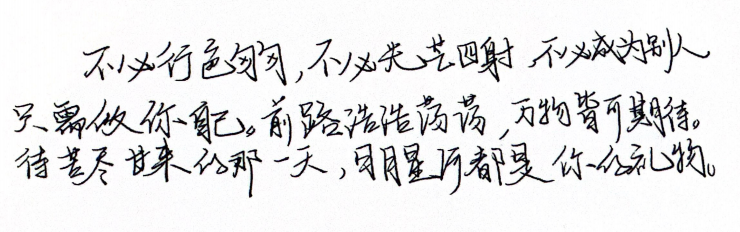 不必行色匆匆,不必光芒四射,不必成为别人
只需做你自己。前路浩浩荡荡,万物皆可期待。
待苦尽甘来的那一天,日月星河都是你的礼物。